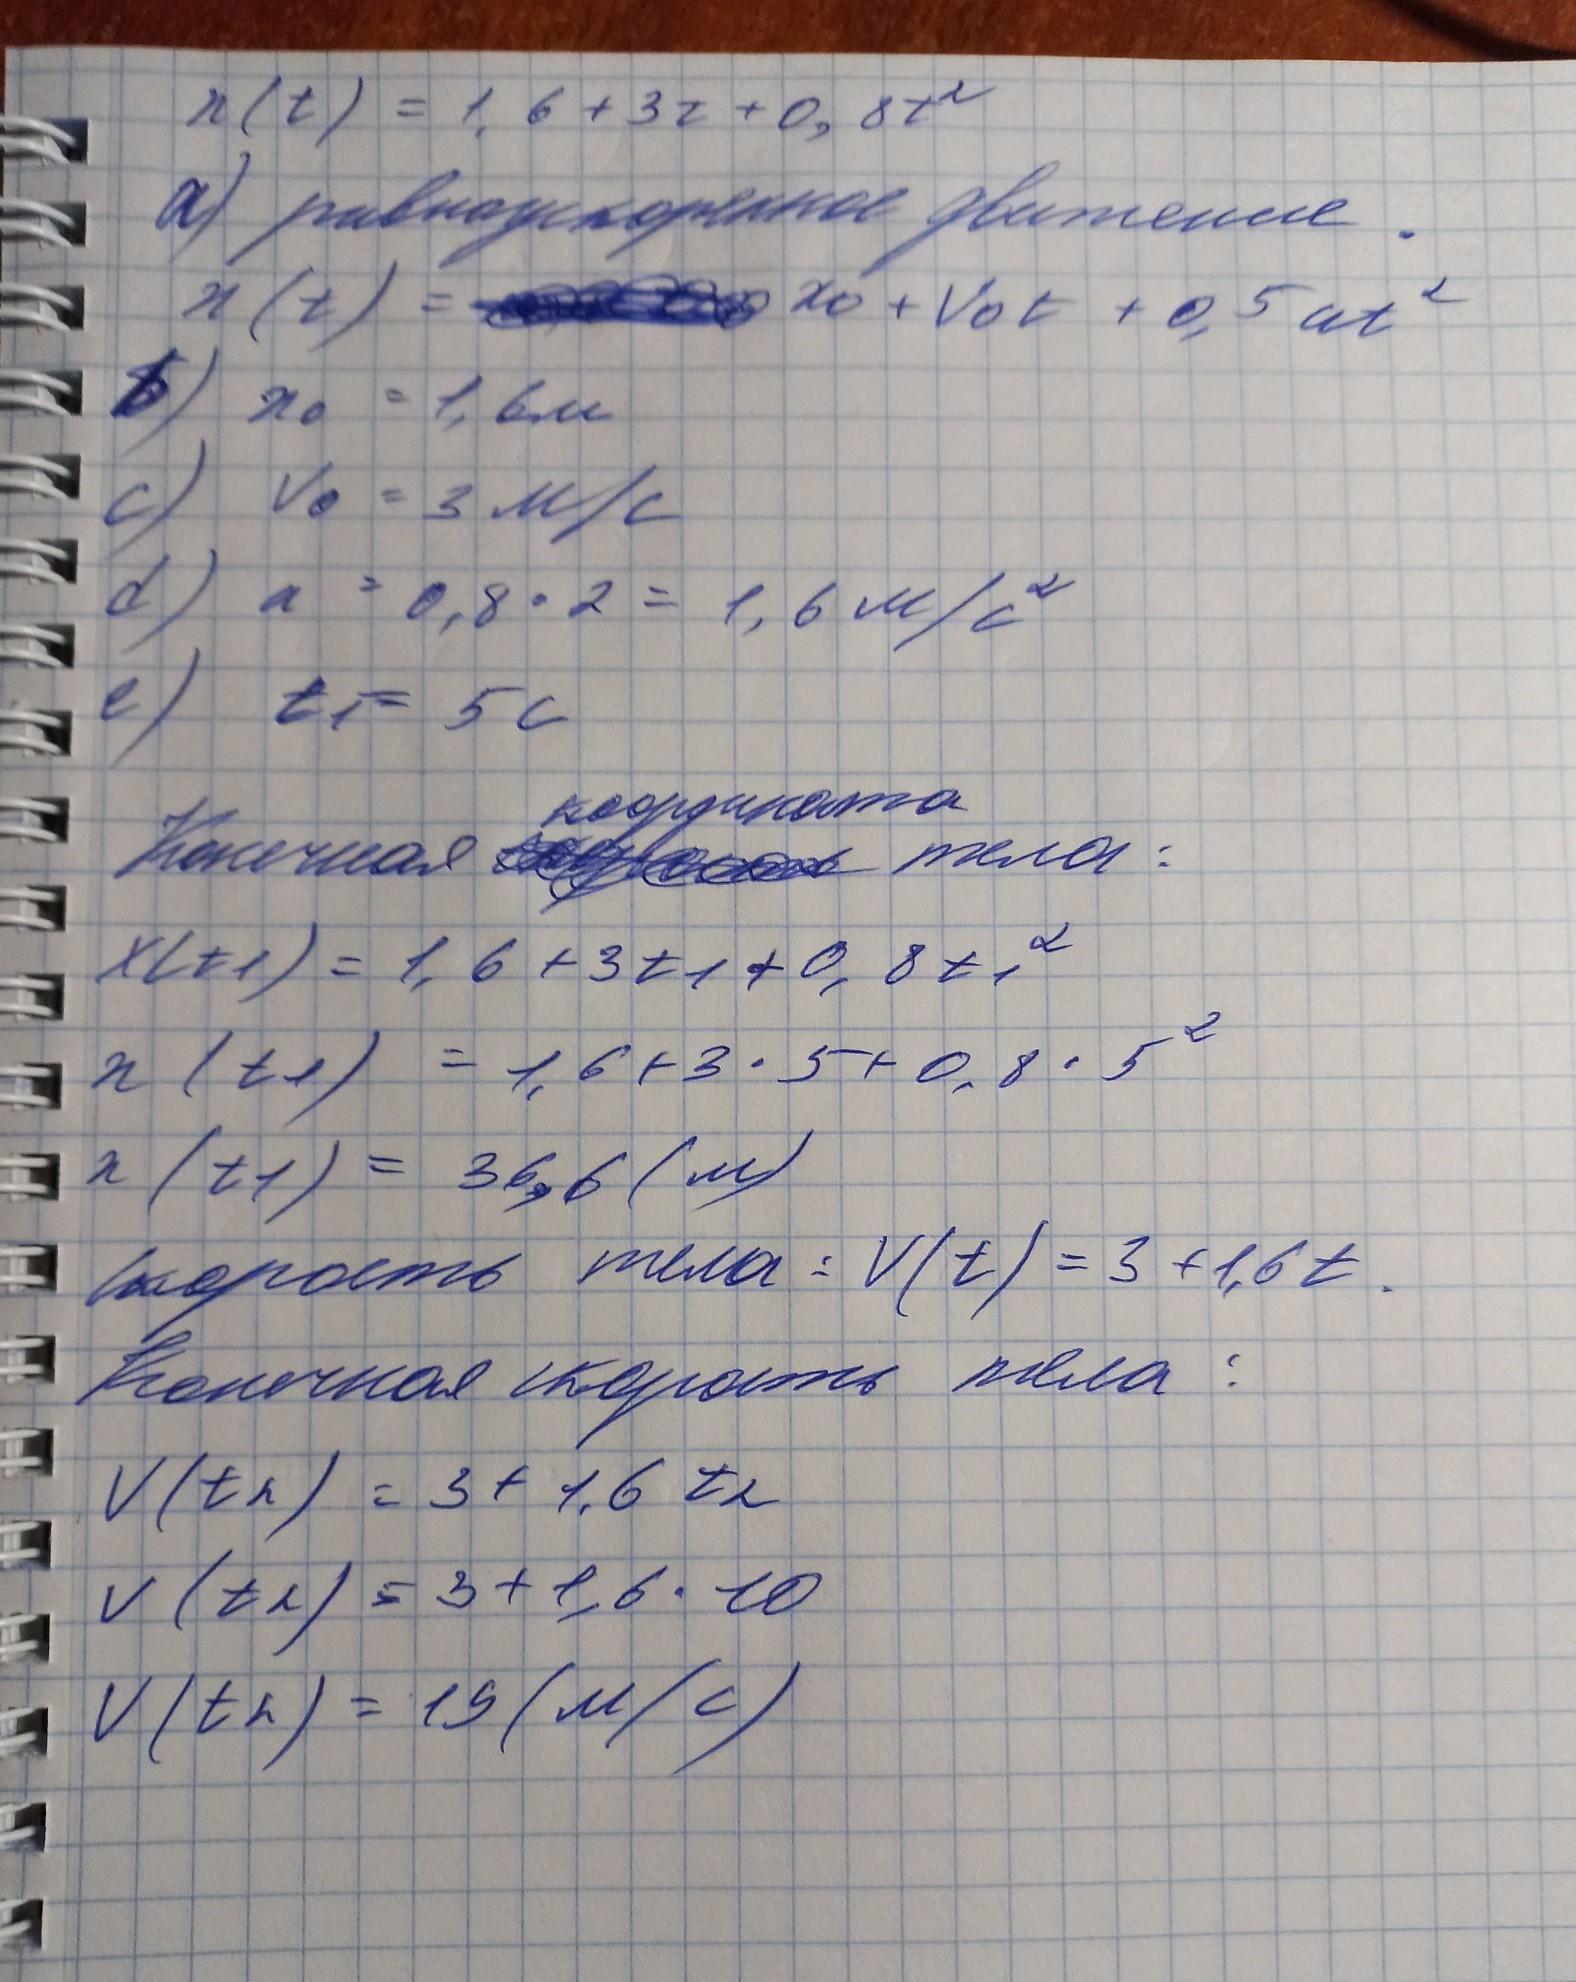 x(t) = 1,6 + 3t + 0,8t²
a) равноускоренное движение.
x(t) = x0 + V0t + 0,5at²
b) x0 = 1,6м
c) V0 = 3 м/с
d) a = 0,8 · 2 = 1,6 м/с²
e) t1 = 5с
координата
Конечная тела:
x(t1) = 1,6 + 3t1 + 0,8t1²
x(t1) = 1,6 + 3 · 5 + 0,8 · 5²
x(t1) = 36,6 (м)
Скорость тела: V(t) = 3 + 1,6t.
Конечная скорость тела:
V(t2) = 3 + 1,6 t2
V(t2) = 3 + 1,6 · 10
V(t2) = 19 (м/с)